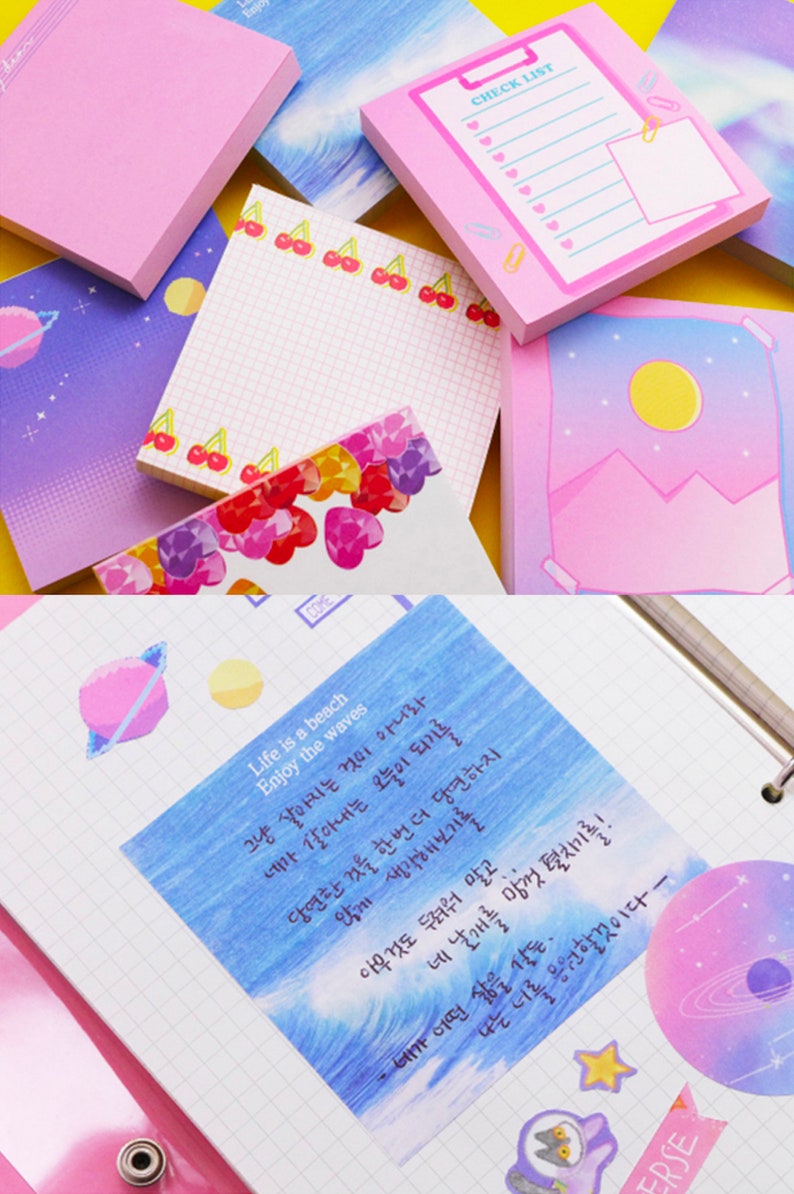 Life
Enjoy
CHECK LIST
COME
Life is a beach
Enjoy the waves
그냥 살아지는 것이 아니라
네가 살아내는 오늘이 되기를
당연한 것을 한번 더 당연하지
않게 생각해보기를
아무것도 두려워 말고
네 날개를 맘껏 펼치기를!
네가 어떤 삶을 살든,
나는 너를 응원할것이다 —
ERSE